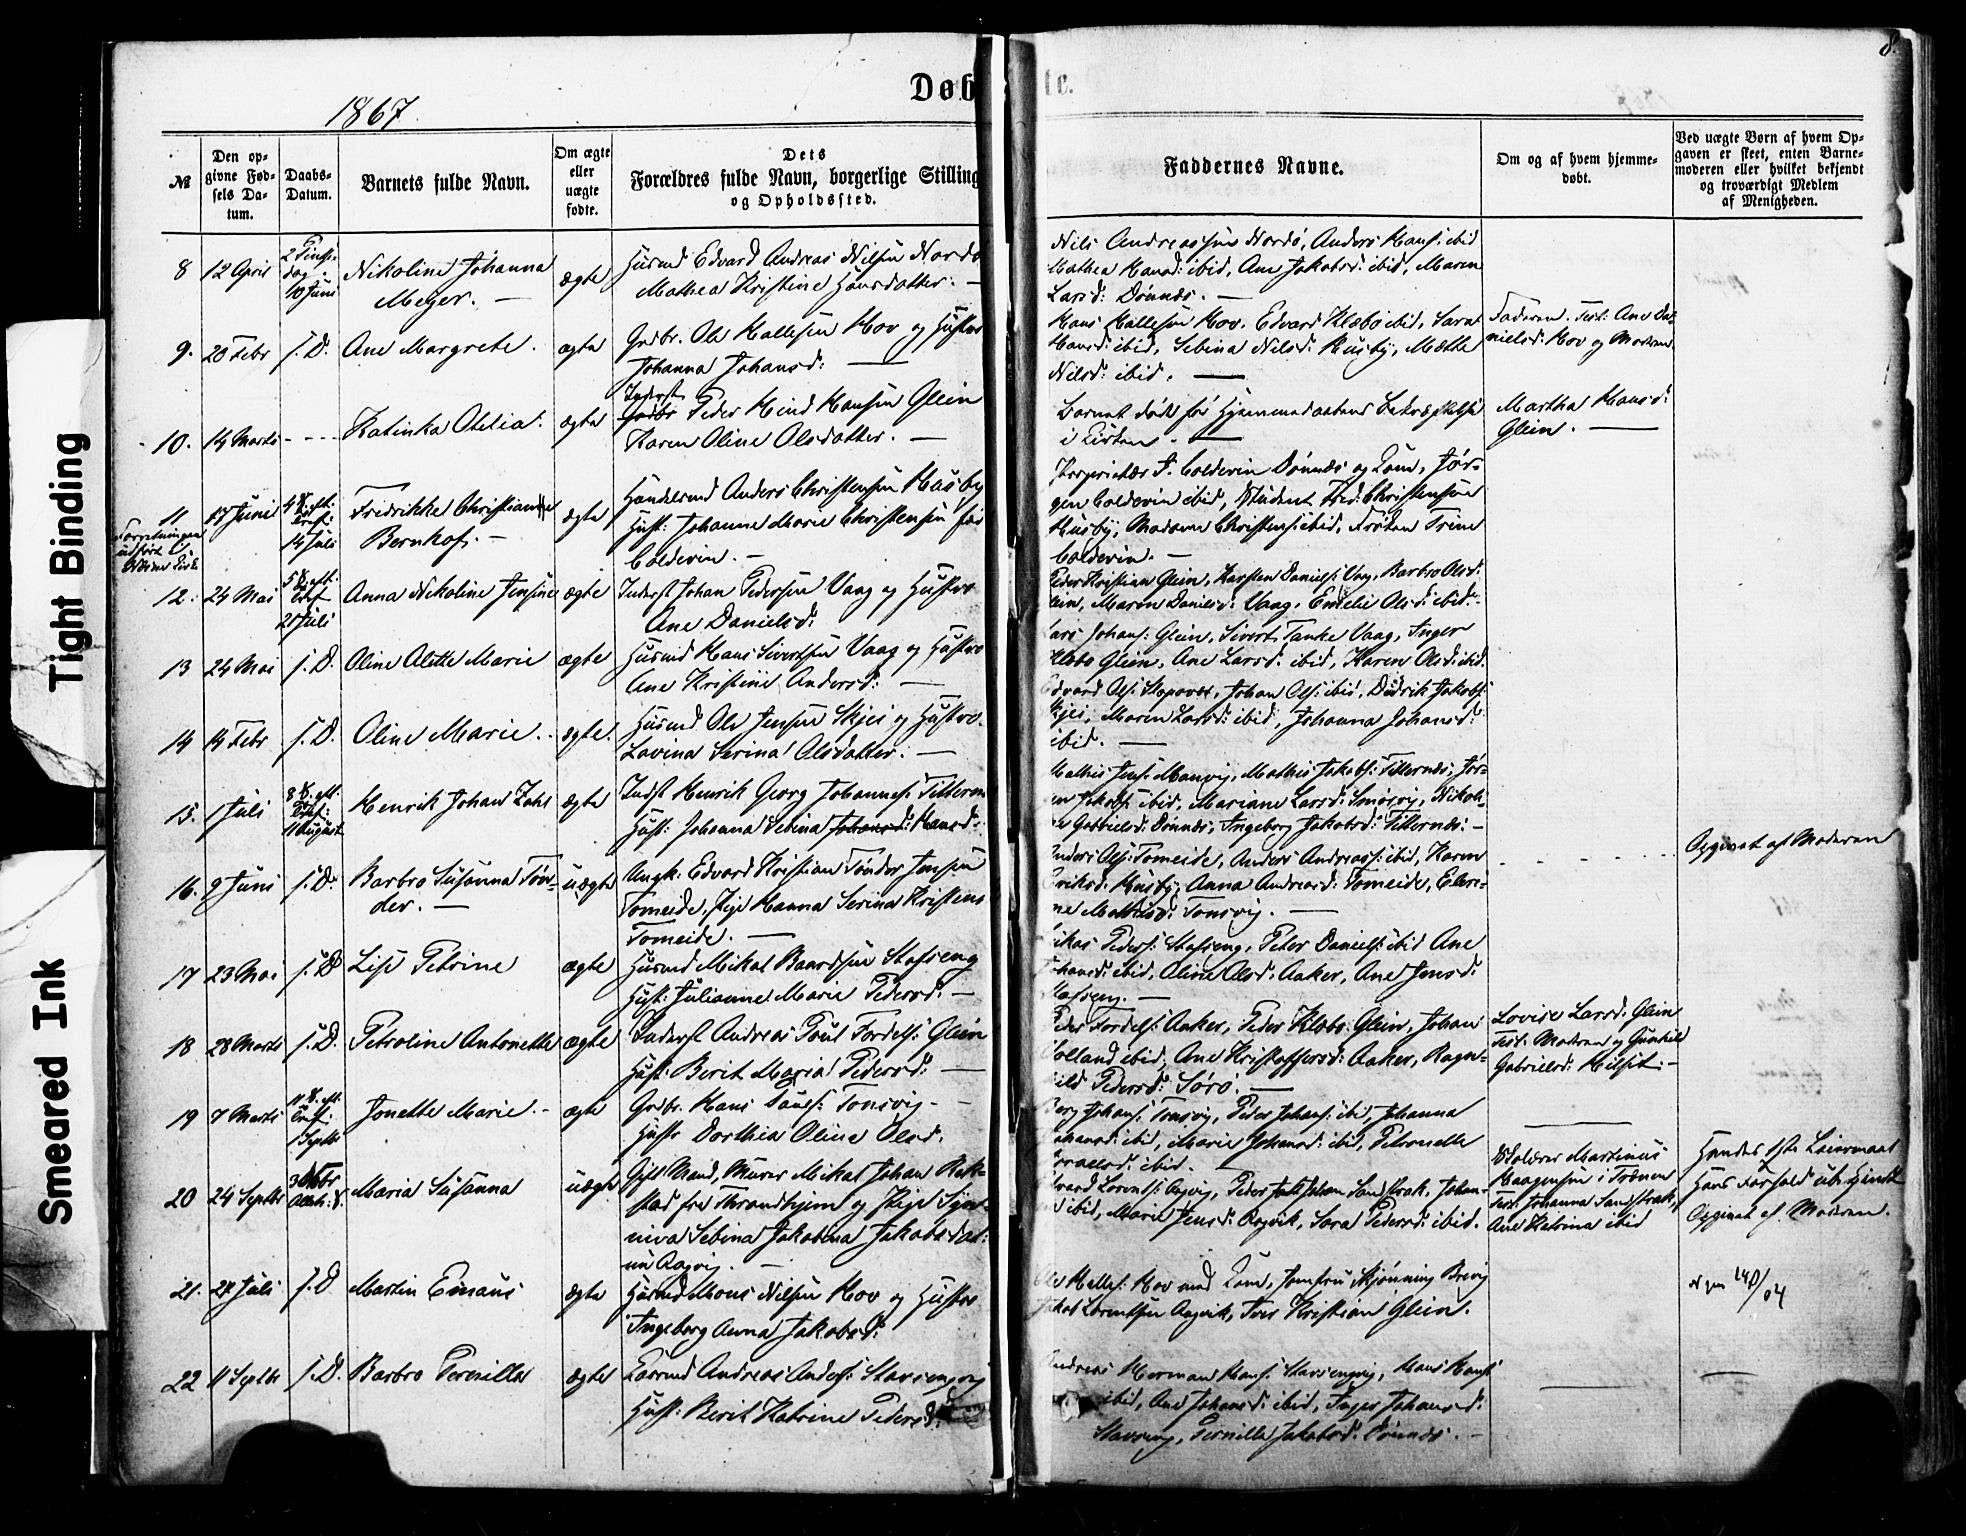 8.
Døb
te.
1867
№
Den op-
givne Fød-
sels Da-
tum.
Daabs-
Datum.
Barnets fulde Navn.
Om ægte
eller
uægte
fødte.
Dets
Forældres fulde Navn, borgerlige Stilling
og Opholdssted.
Faddernes Navne.
Om og af hvem hjemme-
døbt.
Ved uægte Børn af hvem Op-
gaven er skeet, enten Barne-
moderen eller hvilket bekjendt
og troværdigt Medlem
af Menigheden.
8 12 April 2 Pinse-
dag
10 Juni
Nikoline Johanna
Meyer. —
ægte
Husmd Edvard Andreas Nilsen Nordø
Mathea Kristine Hansdatter. —
Nils Andreassen Nordø, Anders Hans: ibid
Mathea Hansd: ibid, Ane Jakobsd: ibid, Maren
Larsd: Dønnes. —
9. 20 Febr s. D. Ane Margrete. ægte
Grdbr. Ole Hallesen Hov og Hustro
Johanna Johansd: —
Hans Hallesen Hov, Edvard Klæbo ibid,
Hansd: ibid, Sebina Nilsd: Husby, Mætte
Nilsd: ibid. —
Faderen. Test: Ane Da-
nielsd: Hov og Moderen.
10. 14 Marts - - - Katinka Otelia. ægte
Inderst
Grdbr Peder Hind Hansen Glein
Karen Oline Olsdatter. —
Barnet døde før Hjemmedaabens Bekræftelse
i Kirken. —
Martha Hansd:
Glein. —
11 15 Juni 4 S. eft:
Tref:
14 Juli
Forretningen
udført i
Fredrikke Christianne
Bernhof. —
ægte
Handelsmd Anders Christensen Husby
Hust: Johanne Marie Christensen før
Coldevin. —
Proprietær J. Coldevin Dønnes og Kone, Jør-
gen Coldevin ibid, Student Fred: Christensen
Husby, Madame Christens: ibid, Frøken Trine
Coldevin. —
12. 24 Mai 5 S. eft.
Tref
21 Juli
Anna Nikoline Jensine ægte
Inderst Johan Pedersen Vaag og Hustro
Ane Danielsd:
Peder Kristian Glein, Karsten Daniels: Vaag, Barbro Olsd:
Maren Danielsd: Vaag, Emelie Olsd: ibid. -
13 24 Mai s. D. Oline Alette Marie ægte
Husmd Hans Sivertsen Vaag og Hustro
Ane Kristine Andersd: —
Johans: Glein, Sivert Tanke Vaag, Inger
Klæbo Glein, Ane Larsd: ibid, Karen Olsd: ibid.
14 14 Febr s. D. Oline Marie. ægte.
Husmd Ole Jensen Skjei og Hustro.
Lovina Serina Olsdatter. —
Edvard Ols: Johan Ols: ibid, Didrik Jakobs:
Skjei, Maren Larsd: ibid, Johanna Johansd:
ibid. —
15. 1 Juli 8 S. eft.
Tref:
11 August
Henrik Johan Zahl ægte
Indst Henrik Georg Johannes:
Hust: Johanna Sebina Johansd: Hansd:
Mathis Jens: Mathis Jakobs: Titternes, Jør-
Jakobs: ibid, Mariane Larsd: Nikoli-
Gabrielsd: Dønnes, Ingeborg Jakobsd: Titternes. —
16. 9 Juni s. D. Barbro Susanna Tøn-
der. —
uægte
Ungk: Edvard Kristian Tønder Jensen
Tomeide, Pige Hanna Serina Kristens
Tomeide. —
Anders Ols: Tomeide, Anders Andreass: ibid, Karen
Eriksd: Husby, Anna Andreasd: Tomeide,
Mathisd: Tonsvig. —
- - - - - Opgivet af Moderen
17 23 Mai s. D Lise Petrine ægte
Husmd Mikal Baardsen Stafseng
Hust: Julianne Marie Pedersd: —
Peders: Stafseng, Peter Daniels: ibid Ane
ibid, Oline Olsd: Aaker, Ane Jensd:
Stafseng. —
18 28 Marts s. D. Petroline Antonette ægte
Inderst Andreas Poul Fordels: Glein
Hust: Berit Maria Pedersd: —
Peder Fordels: Aaker, Peder Klæbo: Glein, Johan
ibid, Ane Kristoffersd: Aaker, Ragn-
hild Pedersd: Sørø. —
Lovise Larsd. Glein
Test: Moderen og Gunhild
Gabrielsd: —
19 7 Marts 11 S. eft.
Tref.
1 Septbr
Jonette Marie. - ægte
Grdbr. Hans Pauls: Tonsvig. —
Hustr Dorthea Oline Olsd.
Johans: Tonsvig, Peder Johans: ibid, Johanna
ibid, Marie Johansd: ibid, Petronelle
ibid. —
20 24 Septbr 3 Novbr
Maria Susanna uægte
Gift Mand, Murer Mikal Johan
fra Throndhjem og Pige
Sebina Jakobina Jakobsdat:
Aagvig. —
Lorents: Aagvig, Peder Johan Sandstrak, Johan-
ibid, Marie Jensd: Aagvik, Sara Pedersd: ibid.
Skolelærer Martinus
Haagensen i
Test: Johanna Sandstrak,
Ane Katrina ibid
Hendes 1ste Leiermaal
Hans Forhold
Opgivet af Moderen.
21. 27 Juli s. D Martin Emaus ægte
Husmd Mons Nilsen Hov og Hustro
Ingeborg Anna Jakobsd:
Ole Halles: Hov med Kone, Jomfru Skjønning
Lorentsen Aagvik, Kristian Glein.
22 11 Septbr s. D. Barbro Pernille ægte
Husmd Andreas Anders: Stavsengvig
Hust: Berit Katrine Pedersd:
Andreas Herman Hans: Stavsengvig, Hans Hans:
ibid, Ane Johansd: ibid, Inger Johansd:
Stavseng, Pernille Jakobsd: Dønnes. —
Tight Binding
Smeared Ink